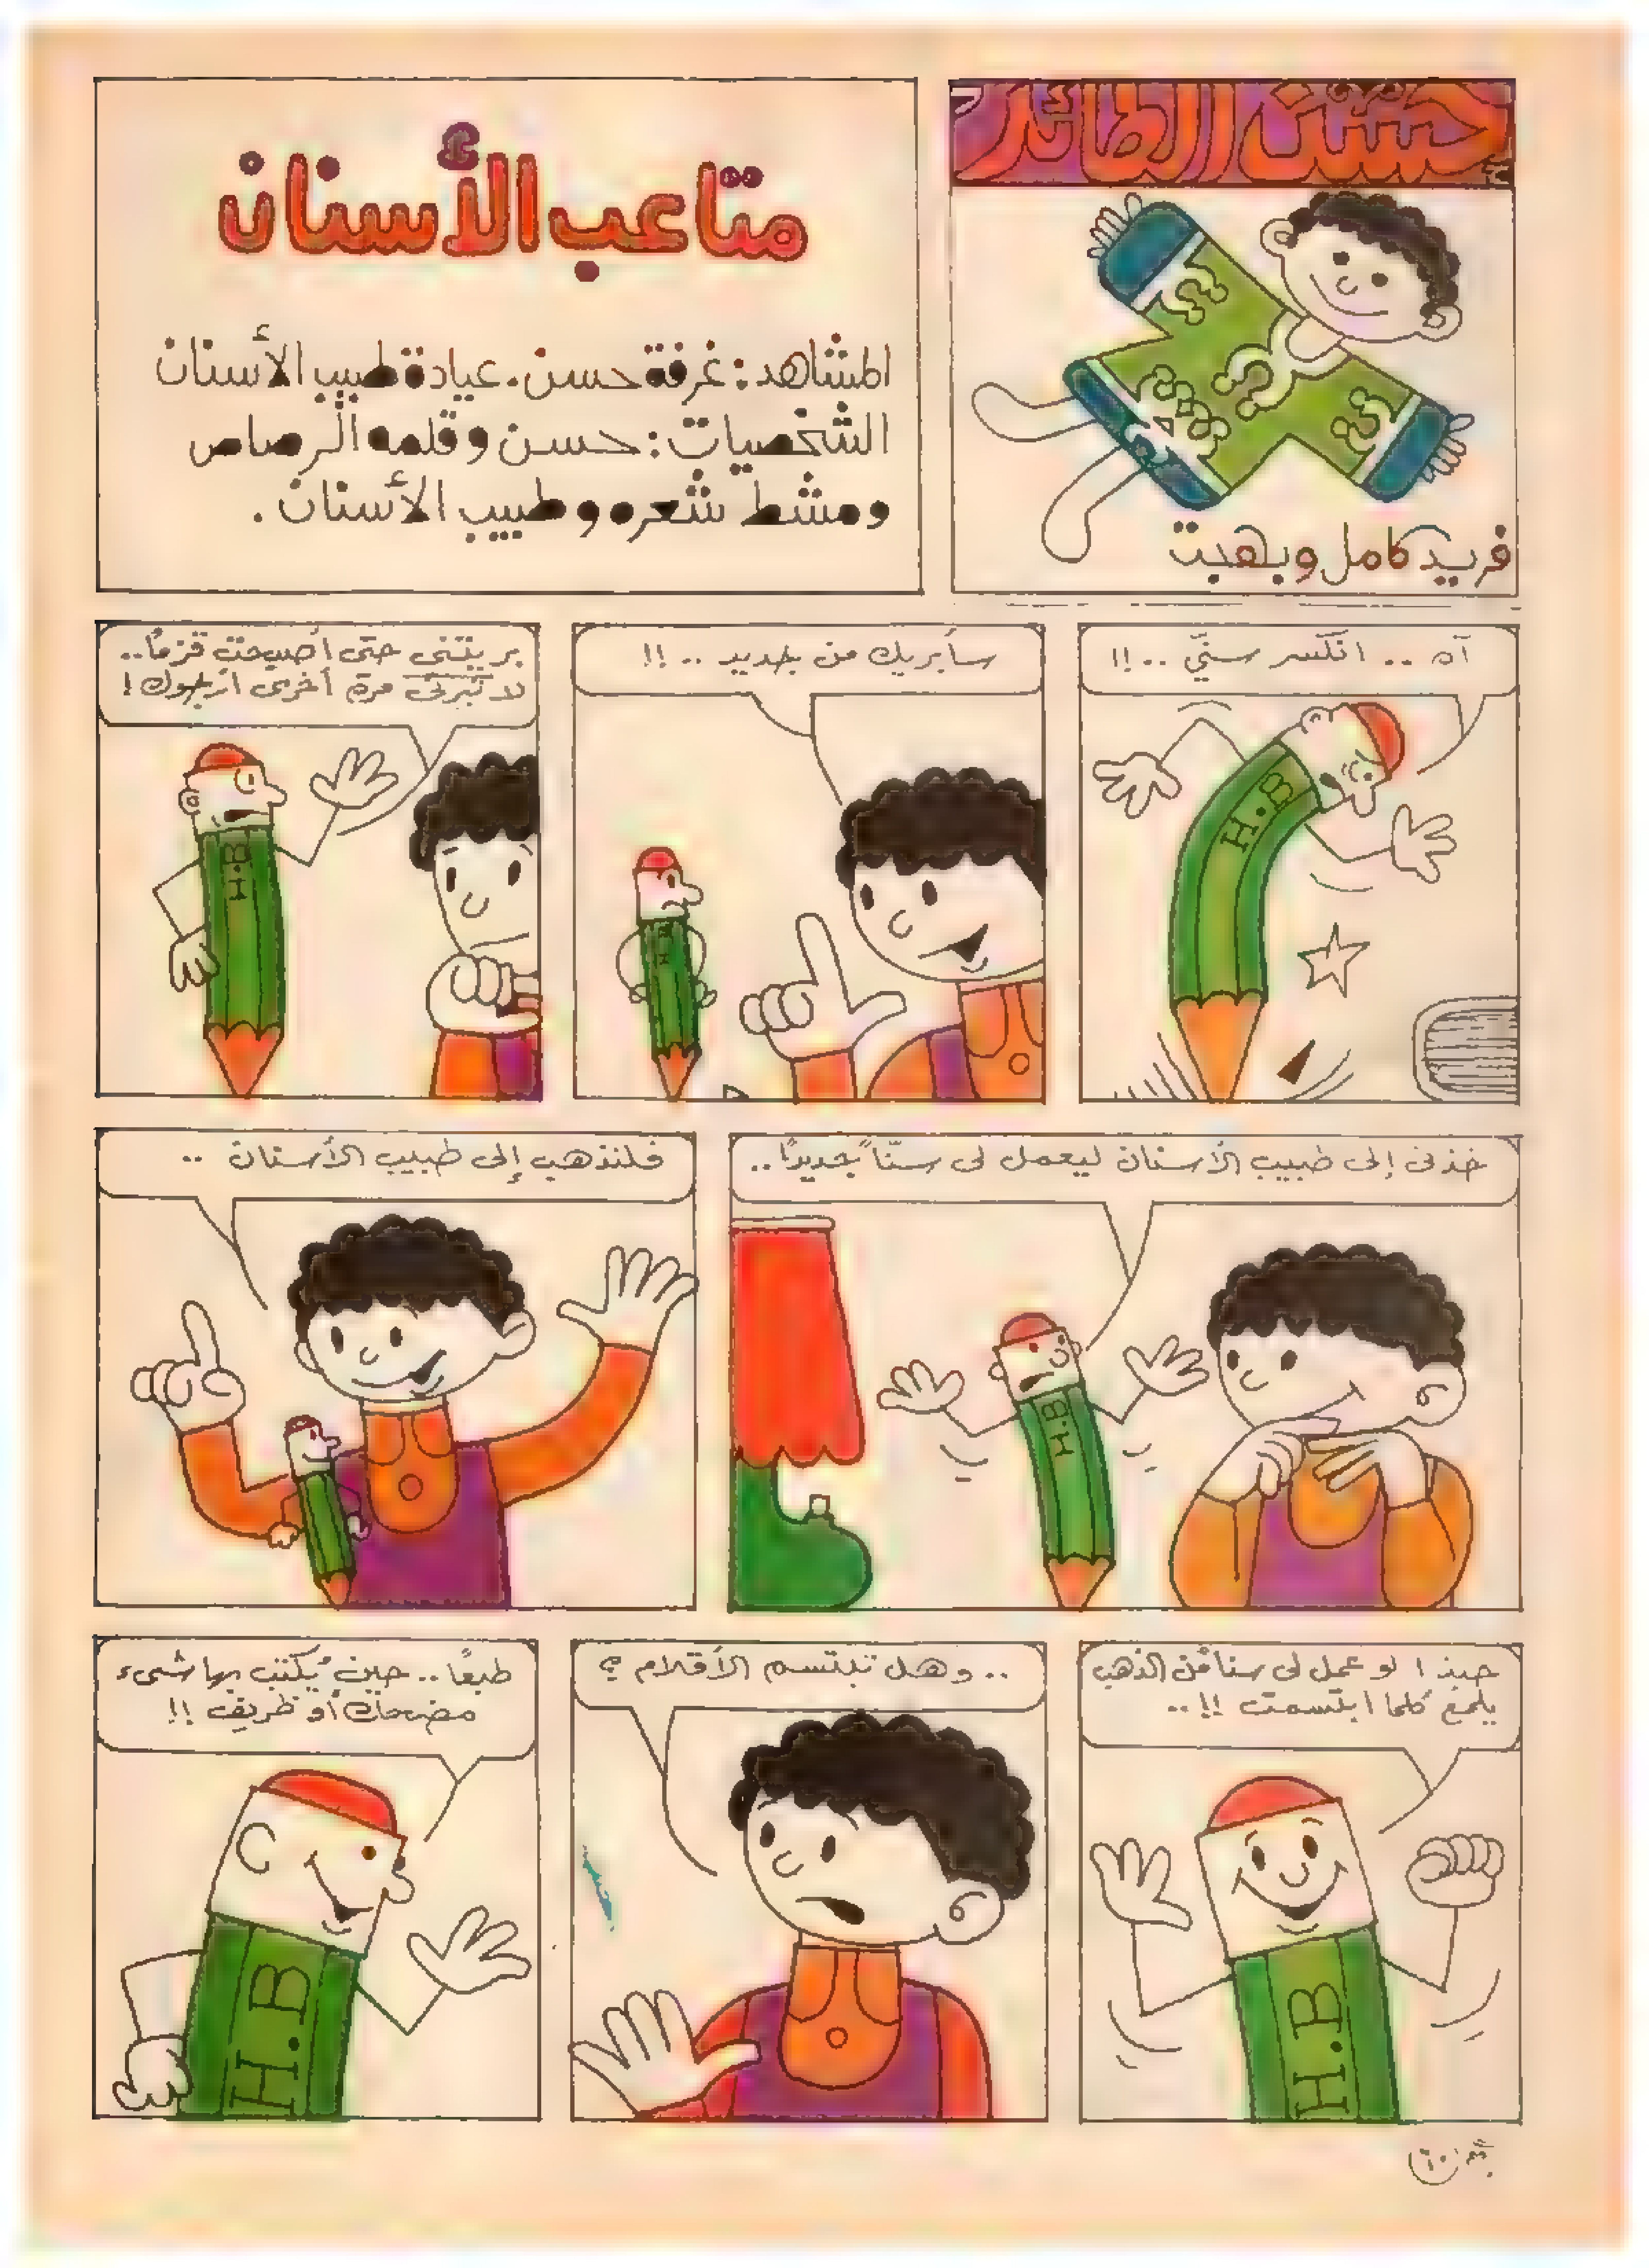 حسن الطائر
فريد كامل وبهجت
متاعب الأسنان
المشاهد: غرفة حسن. عيادة طبيب الأسنان
الشخصيات: حسن وقلمه الرصاص
ومشط شعره وطبيب الأسنان.
آه .. انكسر سنّي ..!!
H.B
سأبريك من جديد ..!!
بريتني حتى أصبحت قزمًا..
لا تبرني مرة أخرى أرجوك!
H.B
خذني إلى طبيب الأسنان ليعمل لى سنّاً جديدًا..
H.B
فلنذهب إلى طبيب الأسنان ..
حبذا لو عمل لى سنا من الذهب
يلمع كلما ابتسمت !!..
H.B
.. وهل تبتسم الأقلام ؟
طبعًا.. حين يُكتب بها شىء
مضحك أو ظريف !!
H.B